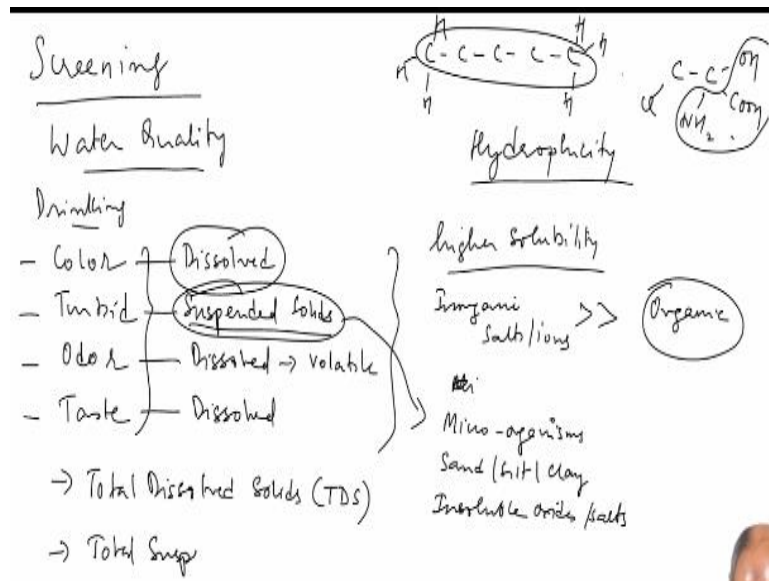 Screening
Water Quality
Drinking
- Color - Dissolved
- Turbid - Suspended Solids
- Odor - Dissolved → volatile
- Taste - Dissolved
→ Total Dissolved Solids (TDS)
→ Total Susp
H H
C - C - C - C - C
H H
H H
C - C OH
NH2 COOH
Hydrophicity
higher solubility
Inorgani
salts/ions >> Organic
Micro-oganisms
Sand/silt/clay
Insoluble oxides/salts